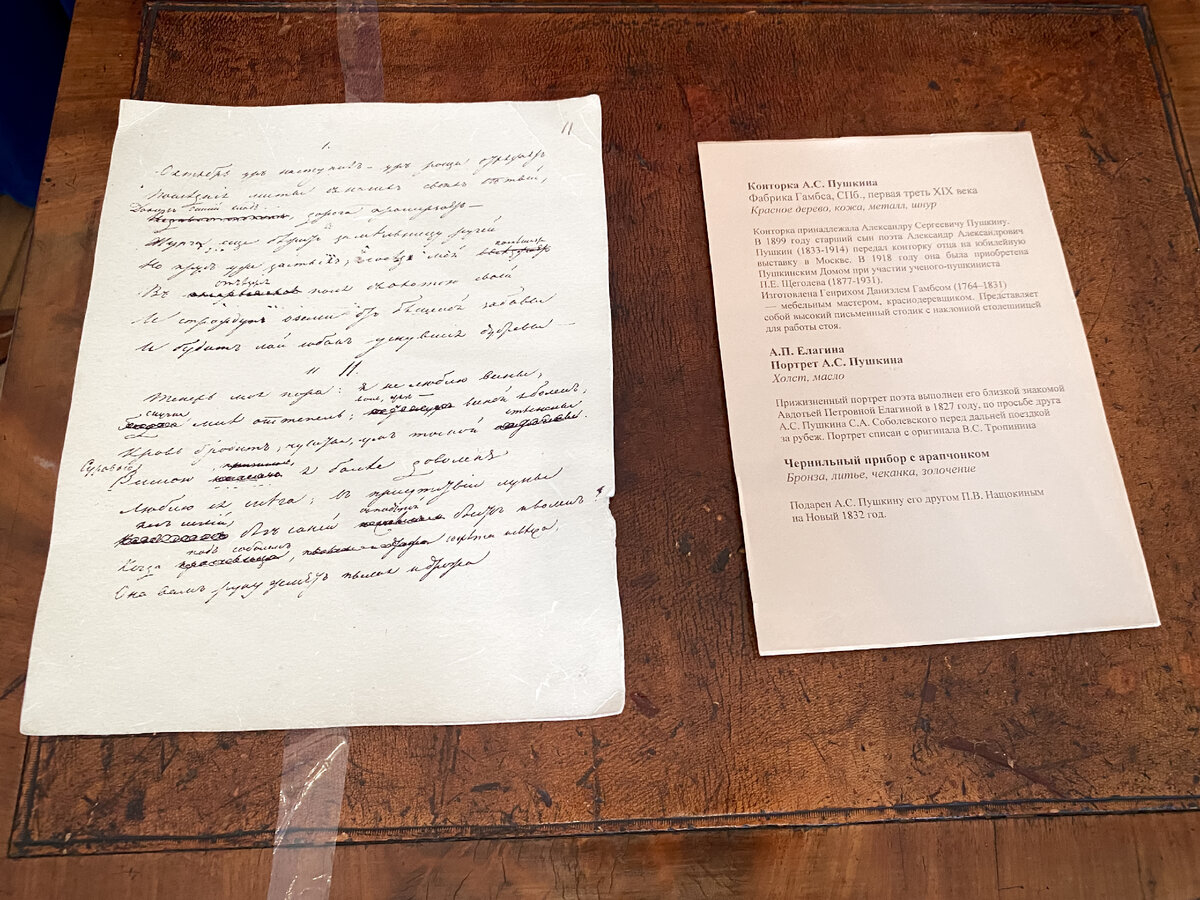 11
I.
Октябрь ужъ наступилъ — ужъ роща отряхаетъ
Последніе листы съ нагихъ своихъ ветвей;
Дохнулъ хладъ
дорога промерзаетъ —
Журча еще бежитъ за мельницу ручей
Но прудъ уже застылъ; соседъ мой поспешаетъ
Въ отъезжія поля съ охотою своей
И страждутъ озими отъ бешеной забавы
И будитъ лай собакъ уснувшія дубравы —
II.
Теперь моя пора: я не люблю весны;
Скучна мне оттепель; вонь, грязь — весной я боленъ;
Кровь бродитъ, чувства, умъ тоскою стеснены.
Суровой зимой я более доволенъ
Люблю ея снега; въ присутствіи луны
Какъ легкій бегъ саней быстръ и воленъ
Когда подъ соболемъ, согрета и свежа,
Она вамъ руку жметъ пылая и дрожа
Конторка А.С. Пушкина
Фабрика Гамбса, СПб., первая треть XIX века
Красное дерево, кожа, металл, шнур
Конторка принадлежала Александру Сергеевичу Пушкину.
В 1899 году старший сын поэта Александр Александрович
Пушкин (1833-1914) передал конторку отца на юбилейную
выставку в Москве. В 1918 году она была приобретена
Пушкинским Домом при участии ученого-пушкиниста
П.Е. Щеголева (1877-1931).
Изготовлена Генрихом Даниэлем Гамбсом (1764–1831)
— мебельным мастером, краснодеревщиком. Представляет
собой высокий письменный столик с наклонной столешницей
для работы стоя.
А.П. Елагина
Портрет А.С. Пушкина
Холст, масло
Прижизненный портрет поэта выполнен его близкой знакомой
Авдотьей Петровной Елагиной в 1827 году, по просьбе друга
А.С. Пушкина С.А. Соболевского перед дальней поездкой
за рубеж. Портрет списан с оригинала В.С. Тропинина
Чернильный прибор с арапчонком
Бронза, литье, чеканка, золочение
Подарен А.С. Пушкину его другом П.В. Нащокиным
на Новый 1832 год.